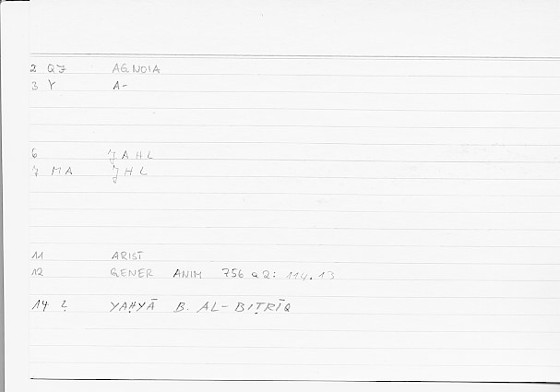 2 QJ AGNOIA
3 Y A-
6 JAHL
7 MA JHL
11 ARIST
12 GENER ANIM 756 a 2: 114.13
14 Ḷ YAḤYĀ B. AL-BIṬRĪQ